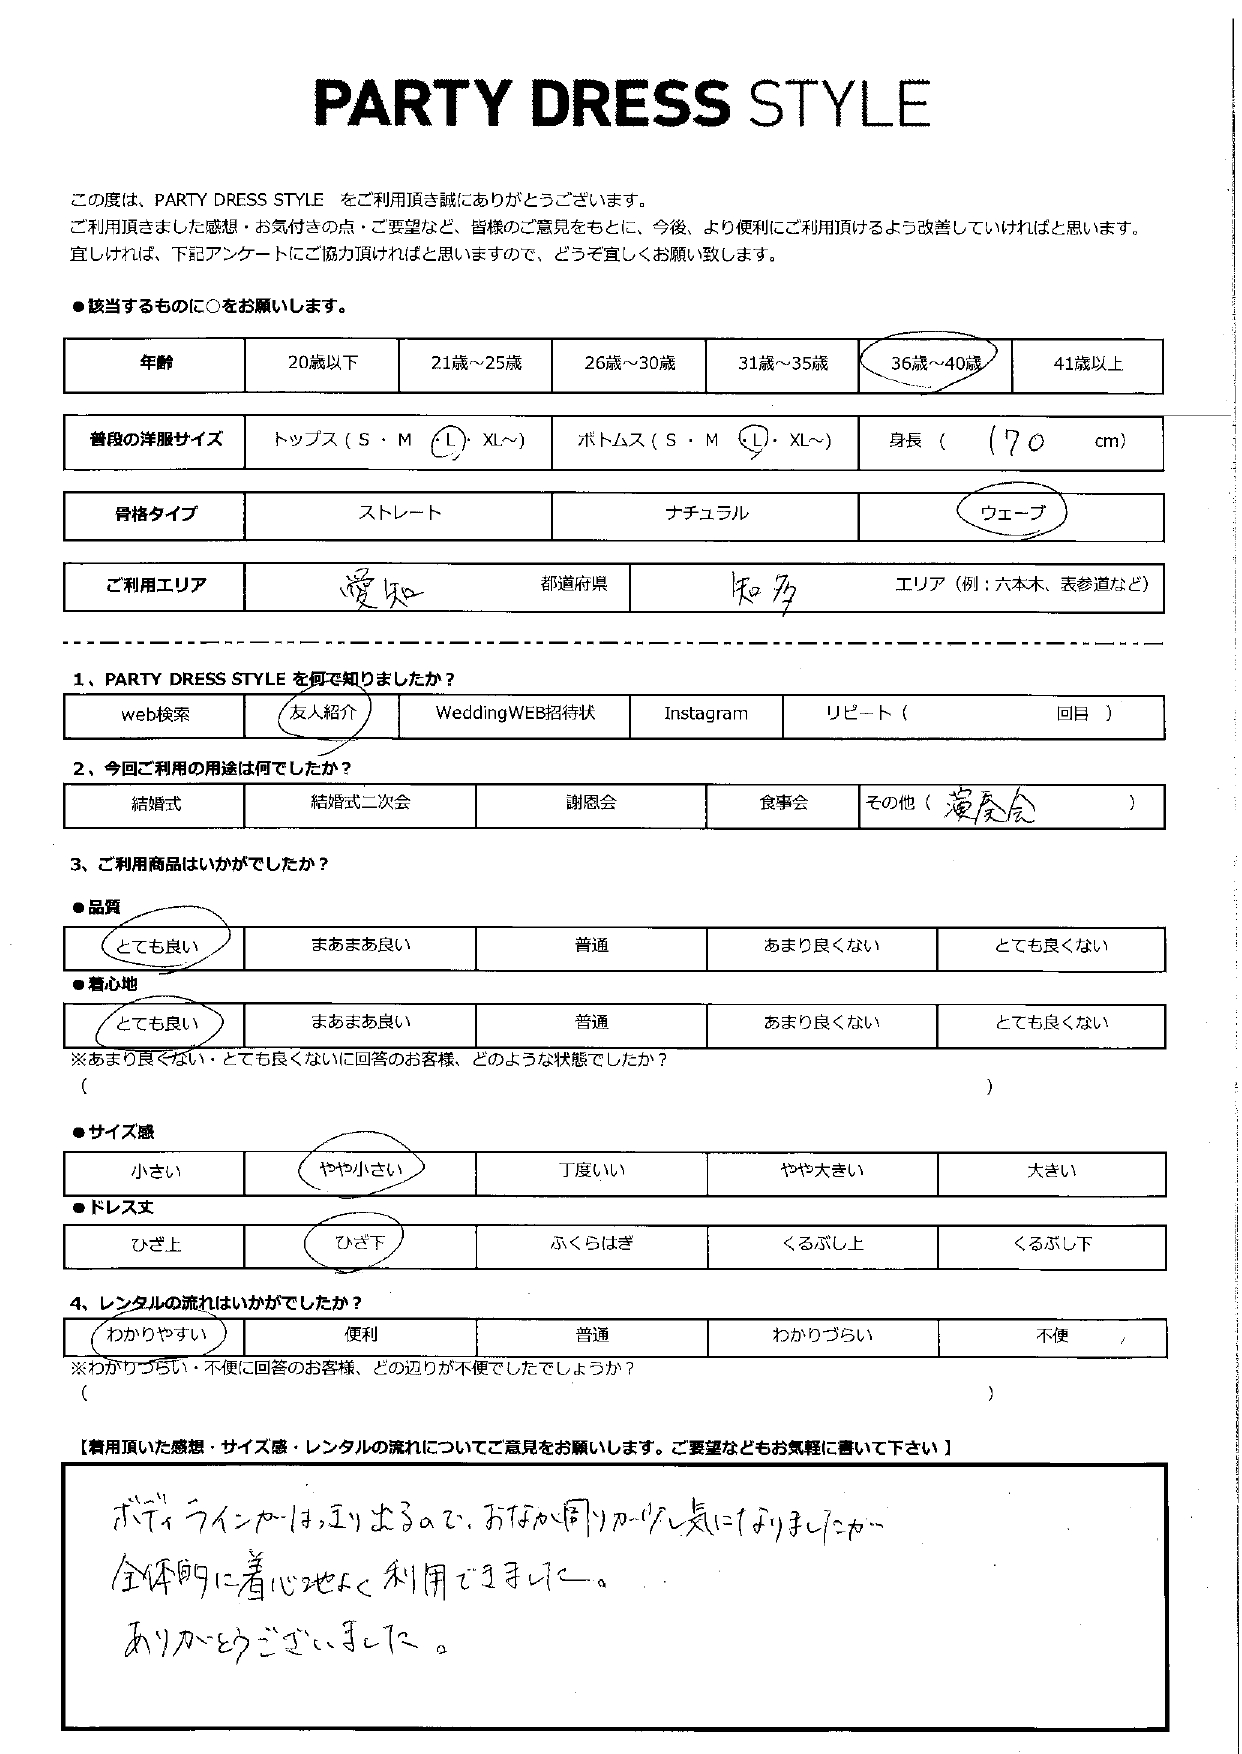 PARTY DRESS STYLE
この度は、PARTY DRESS STYLE　をご利用頂き誠にありがとうございます。
ご利用頂きました感想・お気付きの点・ご要望など、皆様のご意見をもとに、今後、より便利にご利用頂けるよう改善していければと思います。
宜しければ、下記アンケートにご協力頂ければと思いますので、どうぞ宜しくお願い致します。
●該当するものに○をお願いします。
年齢 20歳以下 21歳～25歳 26歳～30歳 31歳～35歳 36歳～40歳 41歳以上
普段の洋服サイズ トップス ( S ・ M ・L・ XL～) ボトムス ( S ・ M ・L・ XL～) 身長 ( 170 cm)
骨格タイプ ストレート ナチュラル ウェーブ
ご利用エリア 愛知 都道府県 知多 エリア（例：六本木、表参道など）
1、PARTY DRESS STYLE を何で知りましたか？
web検索 友人紹介 WeddingWEB招待状 Instagram リピート（ 回目 ）
2、今回ご利用の用途は何でしたか？
結婚式 結婚式二次会 謝恩会 食事会 その他（ 演奏会 ）
3、ご利用商品はいかがでしたか？
●品質
とても良い まあまあ良い 普通 あまり良くない とても良くない
●着心地
とても良い まあまあ良い 普通 あまり良くない とても良くない
※あまり良くない・とても良くないに回答のお客様、どのような状態でしたか？
( )
●サイズ感
小さい やや小さい 丁度いい やや大きい 大きい
●ドレス丈
ひざ上 ひざ下 ふくらはぎ くるぶし上 くるぶし下
4、レンタルの流れはいかがでしたか？
わかりやすい 便利 普通 わかりづらい 不便
※わかりづらい・不便に回答のお客様、どの辺りが不便でしたでしょうか？
( )
【着用頂いた感想・サイズ感・レンタルの流れについてご意見をお願いします。ご要望などもお気軽に書いて下さい 】
ボディラインがはっきり出るので、おなか周りが少し気になりましたが
全体的に着心地よく利用できました。
ありがとうございました。